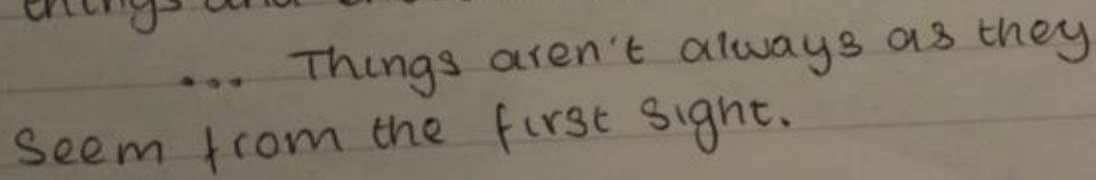 ... Things aren't always as they
Seem from the first sight.